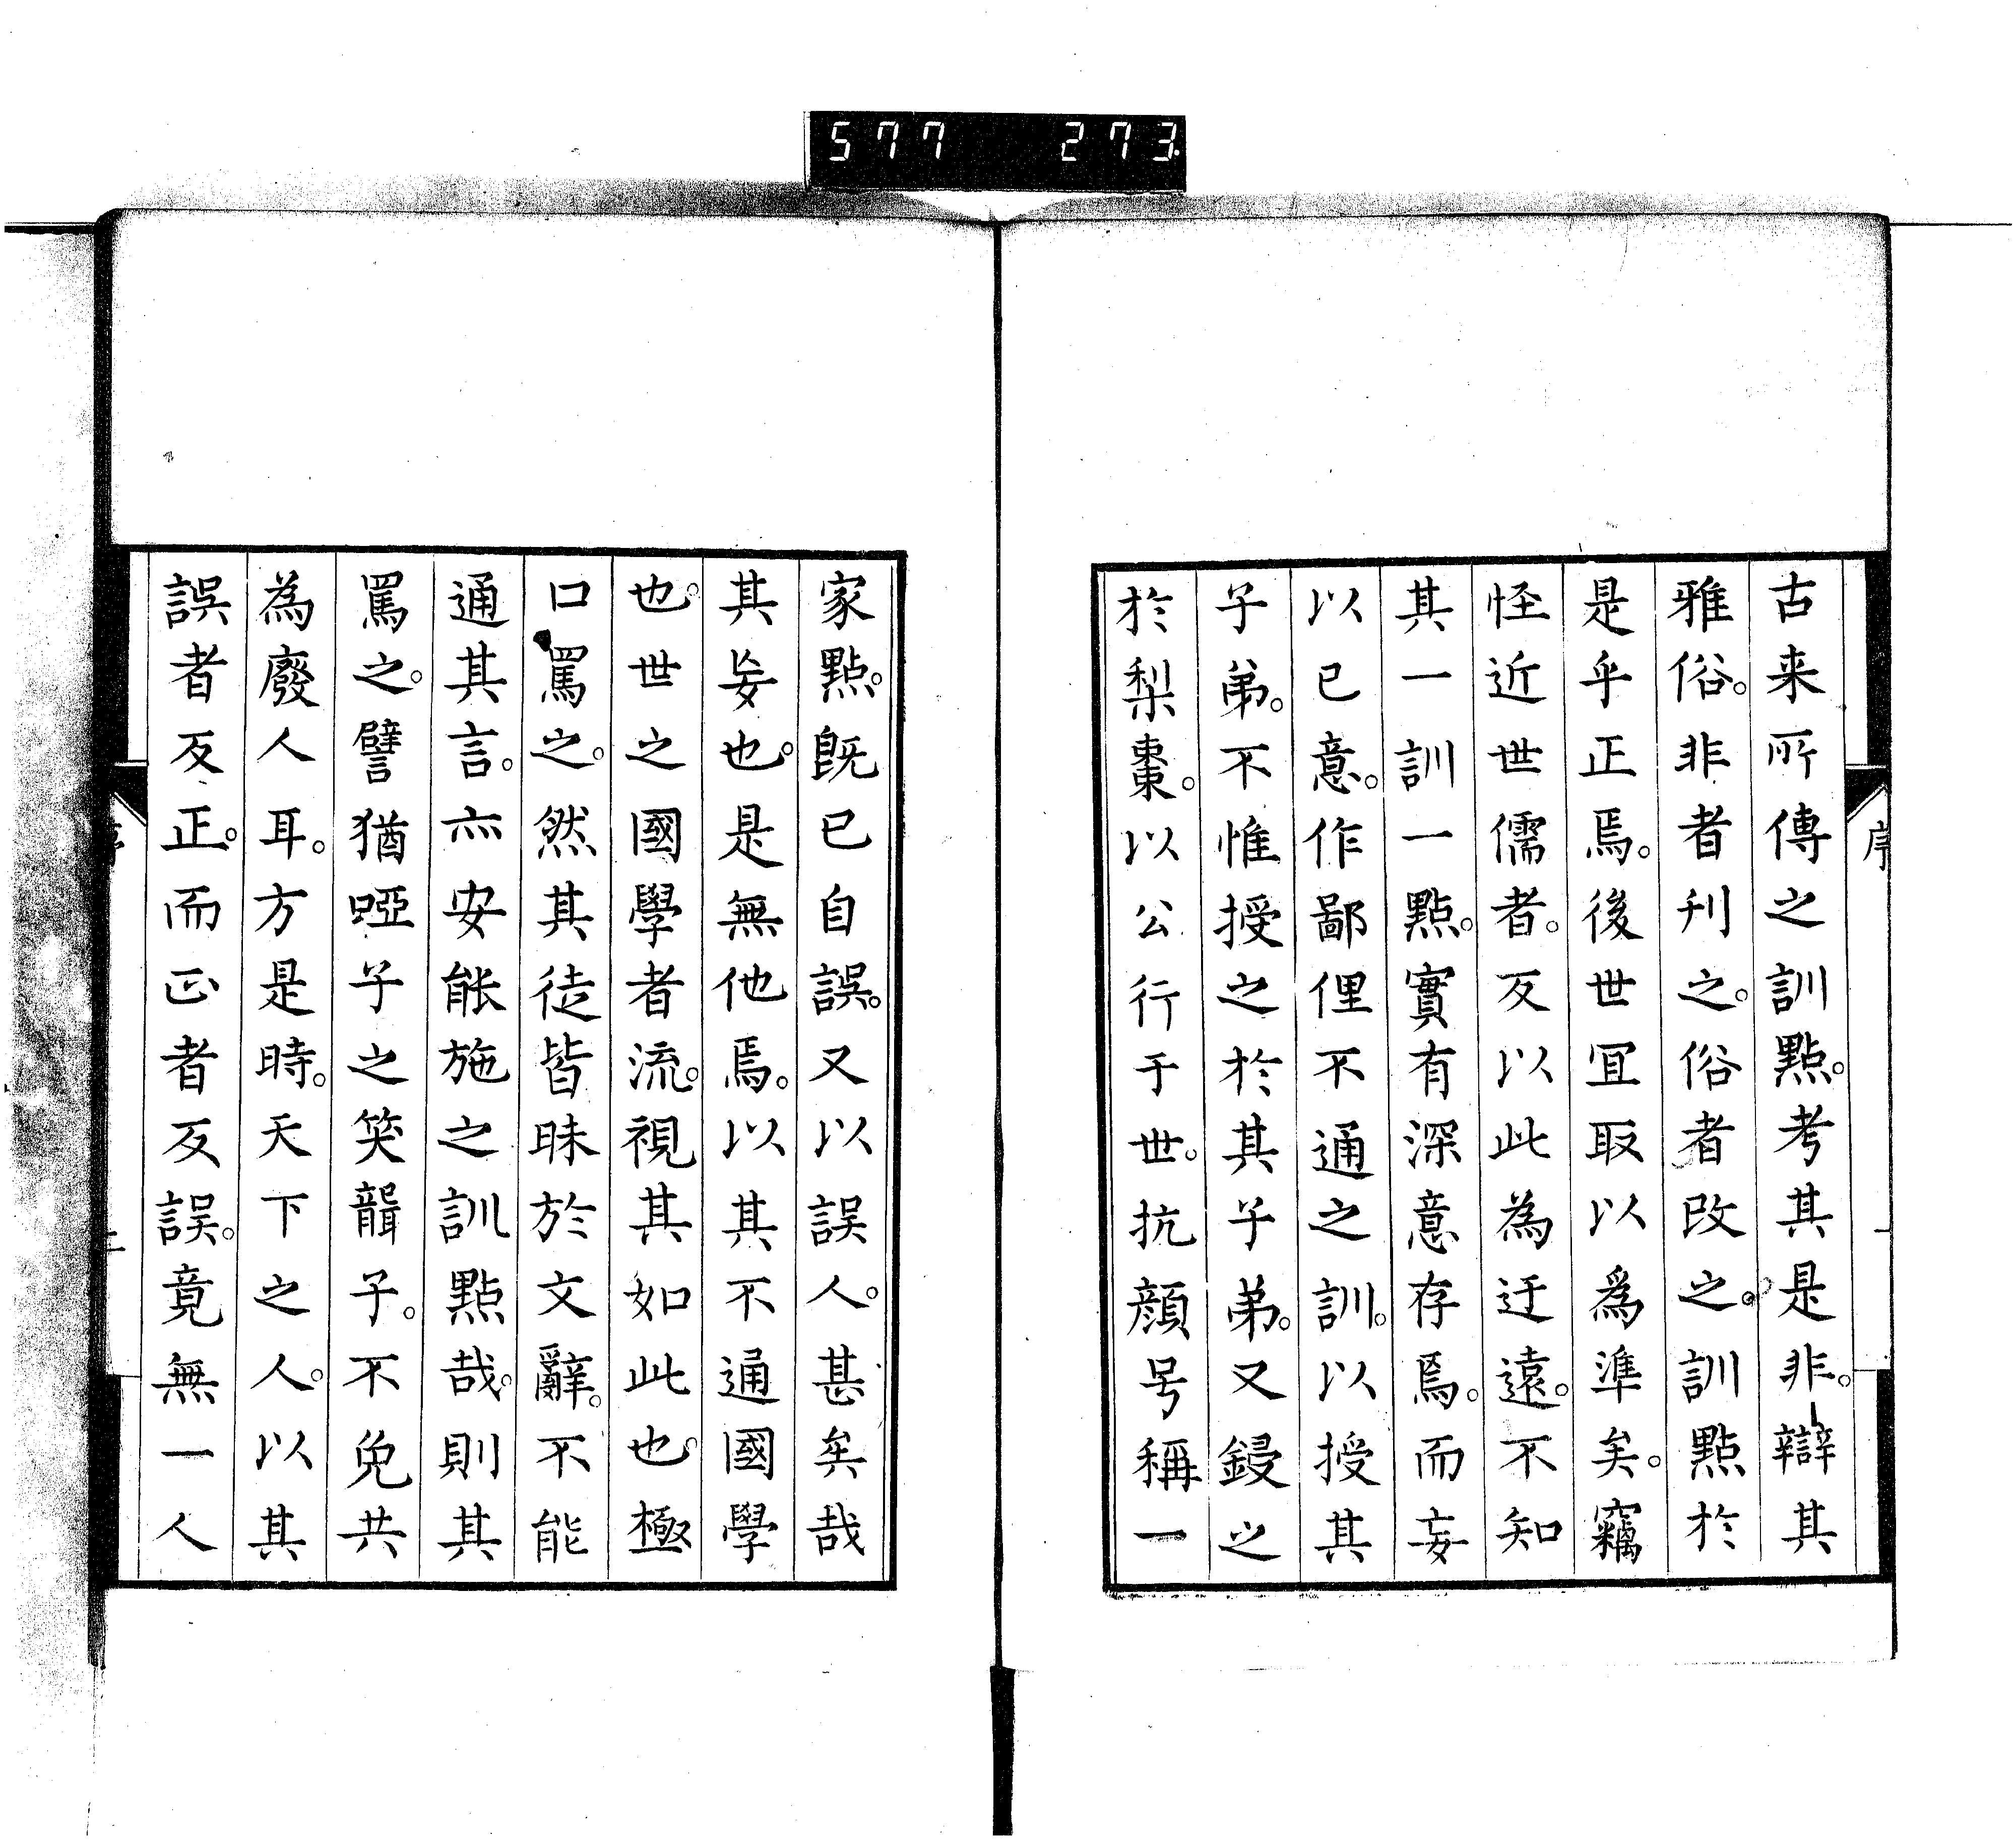 577 273.
序
古来所傳之訓點。考其是非。辯其
雅俗。非者刋之。俗者改之。訓點於
是乎正焉。後世宜取以為準矣。竊
怪近世儒者。反以此為迂遠。不知
其一訓一點。實有深意存焉。而妄
以已意。作鄙俚不通之訓。以授其
子弟。不惟授之於其子弟。又鋟之
於梨棗。以公行于世。抗顔号稱一
家點。既已自誤。又以誤人。甚矣哉
其妄也。是無他焉。以其不通國學
也。世之國學者流。視其如此也。極
口罵之。然其徒皆昧於文辭。不能
通其言。亦安能施之訓點哉。則其
罵之。譬猶啞子之笑聾子。不免共
為廢人耳。方是時。天下之人。以其
誤者反正。而正者反誤。竟無一人